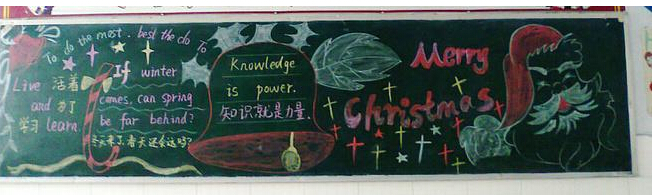 To do the most . best the do To
Live 活着
and 为了
学习 learn.
If winter
comes, can spring
be far behind?
冬天来了,春天还会远吗?
Knowledge
is power.
知识就是力量.
Merry
Christmas